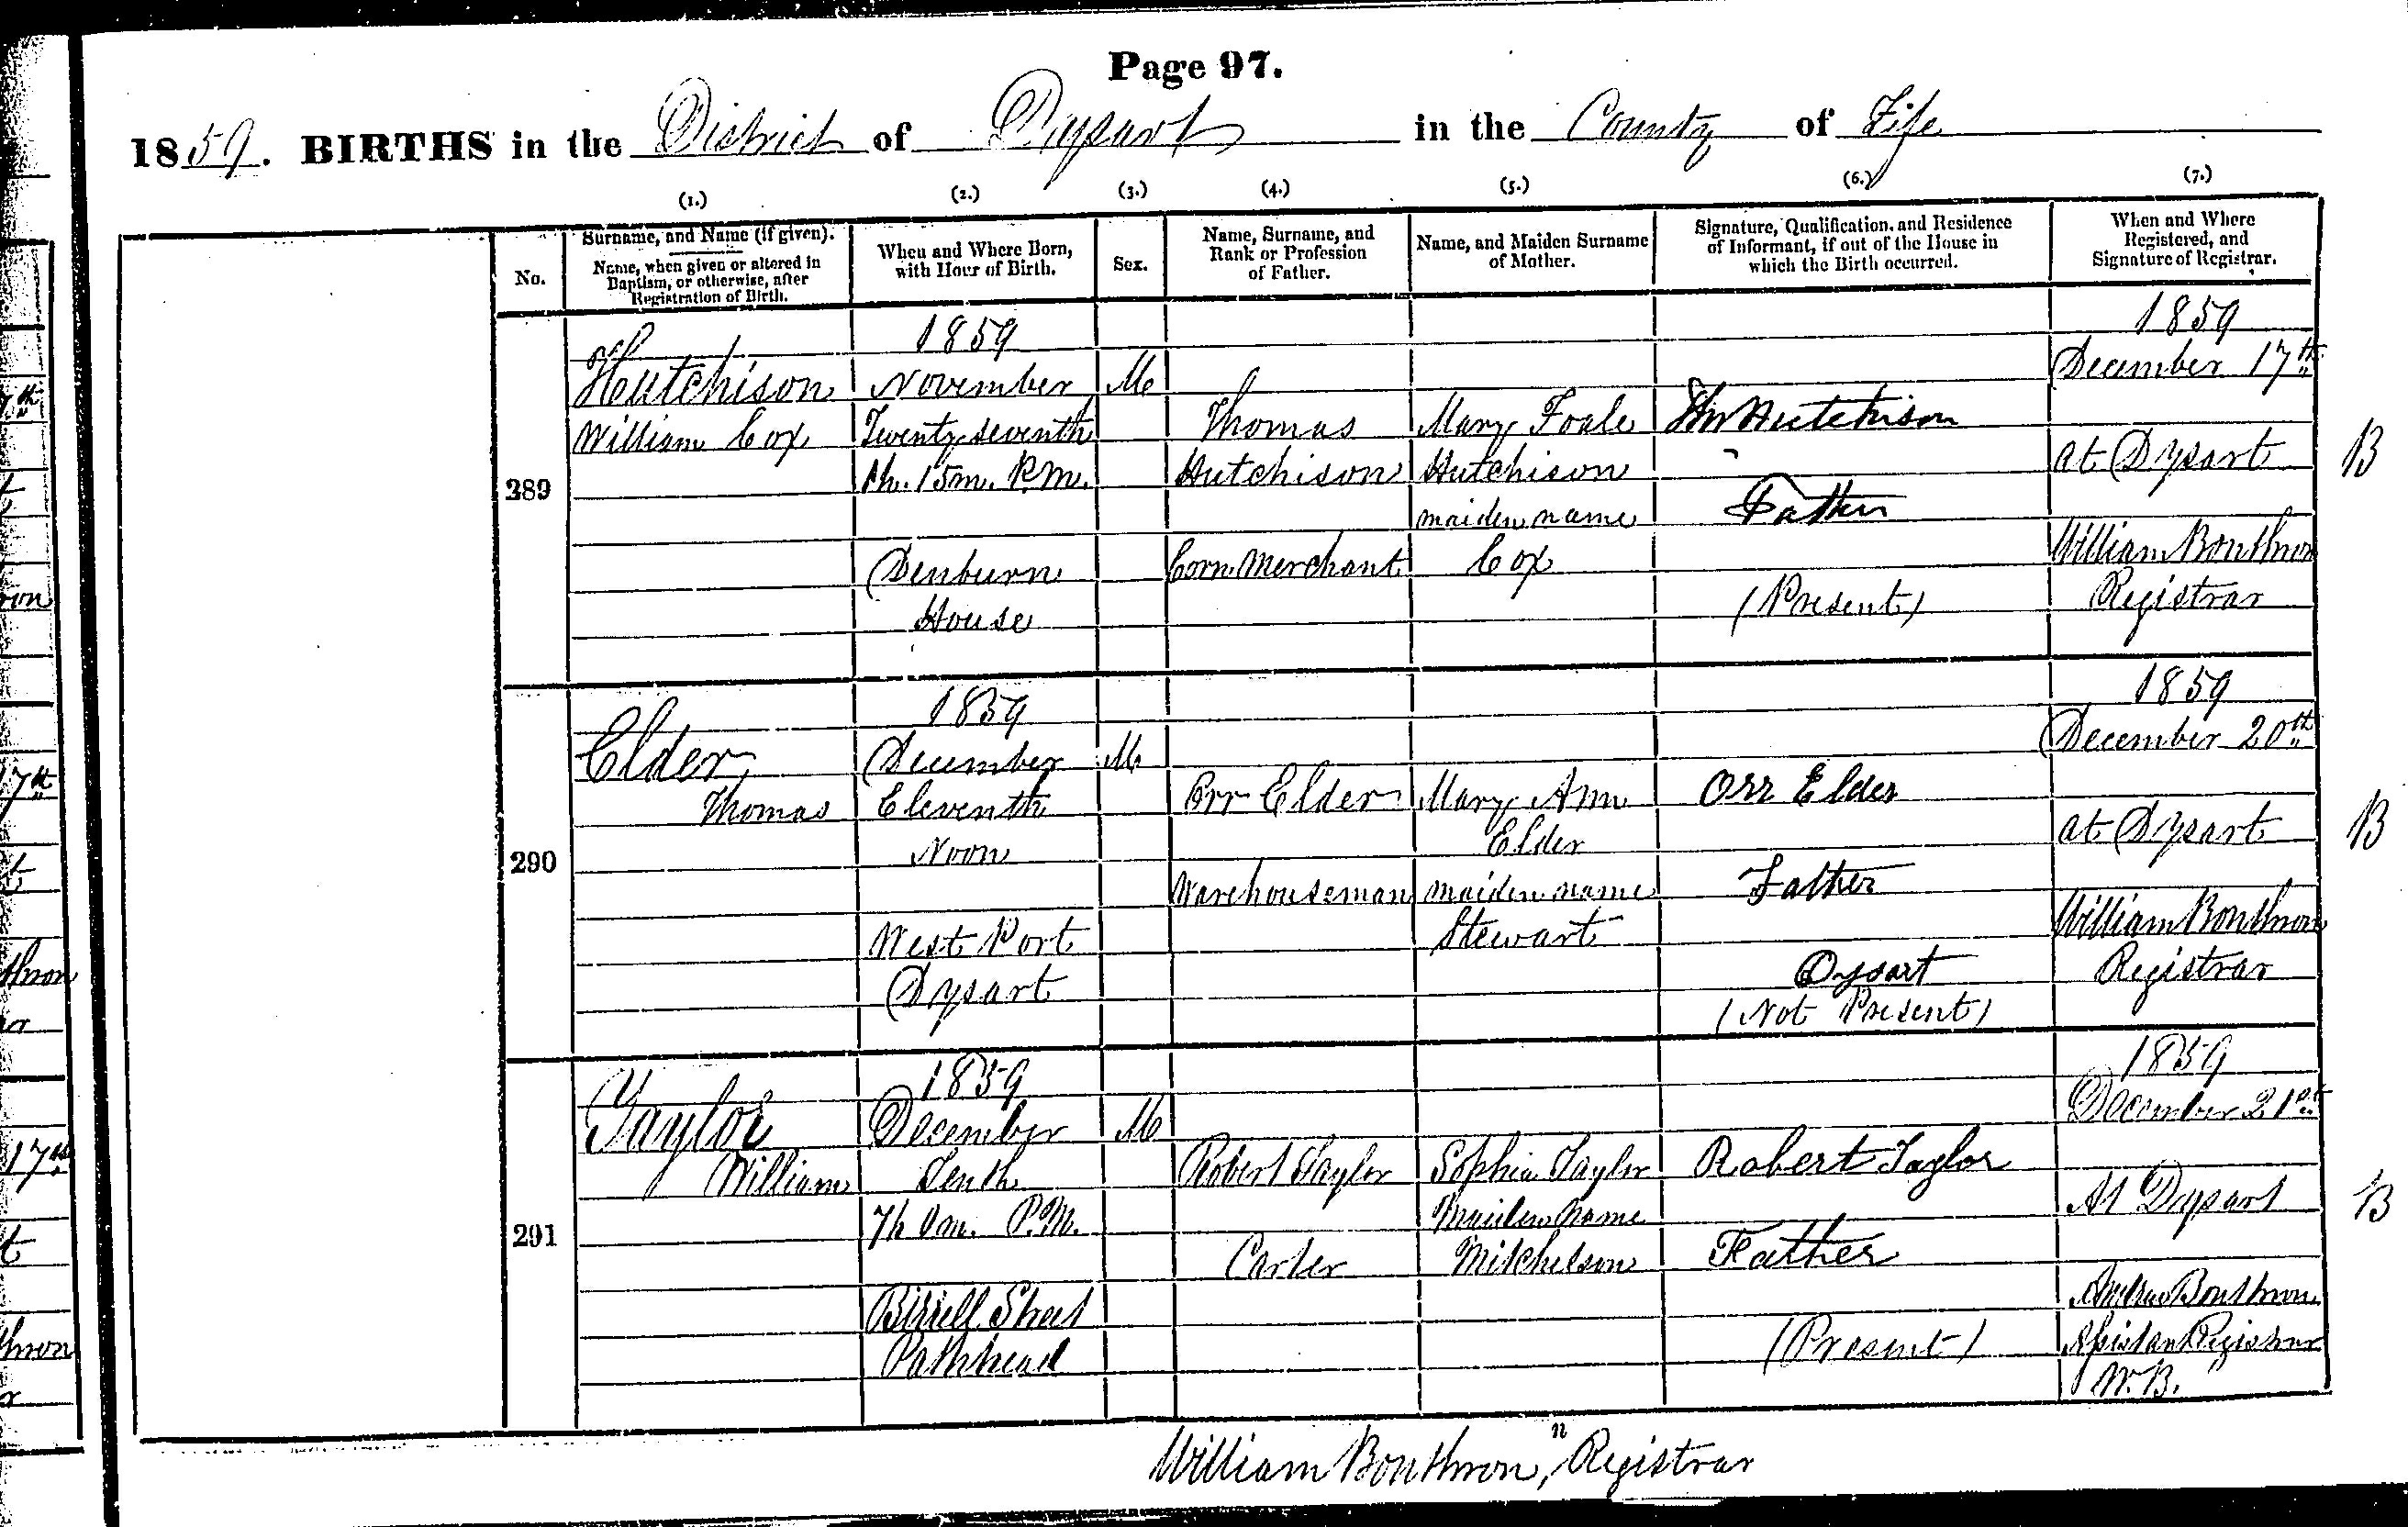 Page 97.
1859. BIRTHS in the District of Dysart in the County of Fife
(1.) (2.) (3.) (4.) (5.) (6.) (7.)
No.
Surname, and Name (if given).
Name, when given or altered in
Baptism, or otherwise, after
Registration of Birth.
When and Where Born,
with Hour of Birth.
Sex.
Name, Surname, and
Rank or Profession
of Father.
Name, and Maiden Surname
of Mother.
Signature, Qualification, and Residence
of Informant, if out of the House in
which the Birth occurred.
When and Where
Registered, and
Signature of Registrar.
289
Hutchison
William Cox
1859
November
Twenty seventh
1h. 15m. P.M.
Denburn
House
M
Thomas
Hutchison
Corn Merchant
Mary Foale
Hutchison
maiden name
Cox
Hutchison
Father
(Present)
1859
December 17th
at Dysart
William Bonthron
Registrar
B
290
Elder
Thomas
1859
December
Eleventh
Noon
West Port
Dysart
M
Orr Elder
Warehouseman
Mary Ann
Elder
maiden name
Stewart
Orr Elder
Father
Dysart
(Not Present)
1859
December 20th
at Dysart
William Bonthron
Registrar
B
291
Taylor
William
1859
December
Tenth
7h 0m. P.M.
Birrell Street
Pathhead
M
Robert Taylor
Carter
Sophia Taylor
Maiden Name
Mitchelson
Robert Taylor
Father
(Present)
1859
December 21st
At Dysart
Andrew Bonthron
Assistant Registrar
W.B.
B
William Bonthron, Registrar